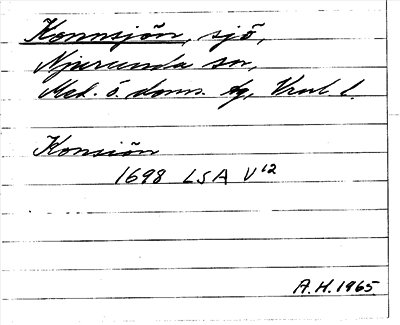 Konnsjön, sjö,
Njurunda sn,
Med. ö. doms. tg, Vnrl l.
Konsiön
1698 LSA V12
A.H. 1965